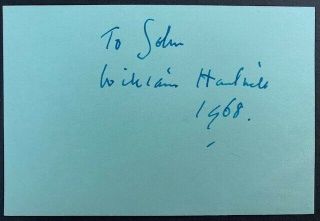 To John
William Hartnell
1968.